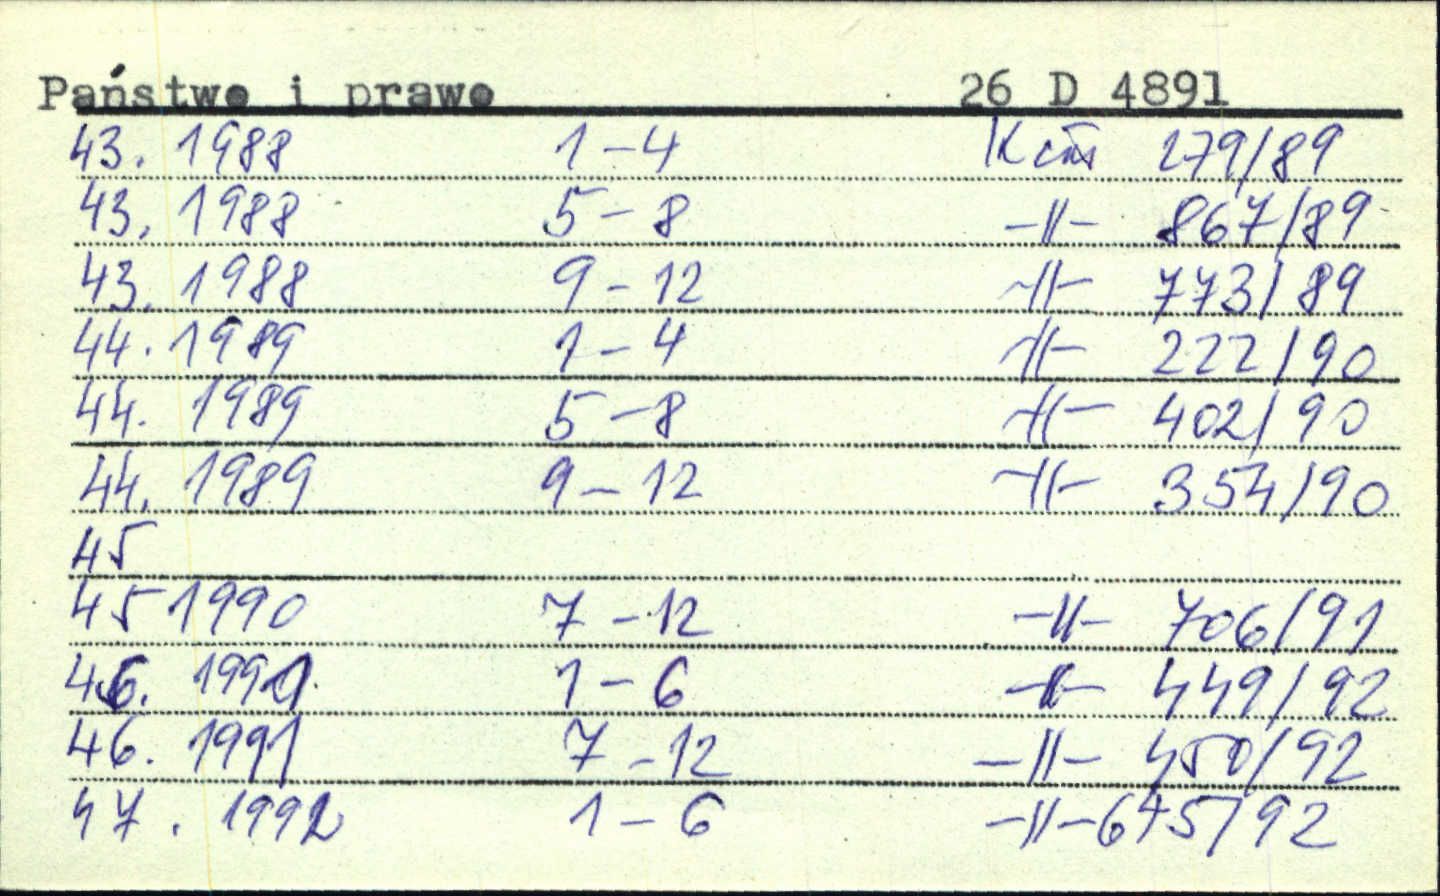 Państwo i prawo 26 D 4891
43. 1988 1-4 279/89
43. 1988 5-8 -||- 867/89
43. 1988 9-12 -||- 773/89
44. 1989 1-4 -||- 222/90
44. 1989 5-8 -||- 402/90
44. 1989 9-12 -||- 354/90
45
45 1990 7-12 -||- 706/91
46. 1991 1-6 -||- 449/92
46. 1991 7-12 -||- 450/92
47. 1992 1-6 -||- 645/92